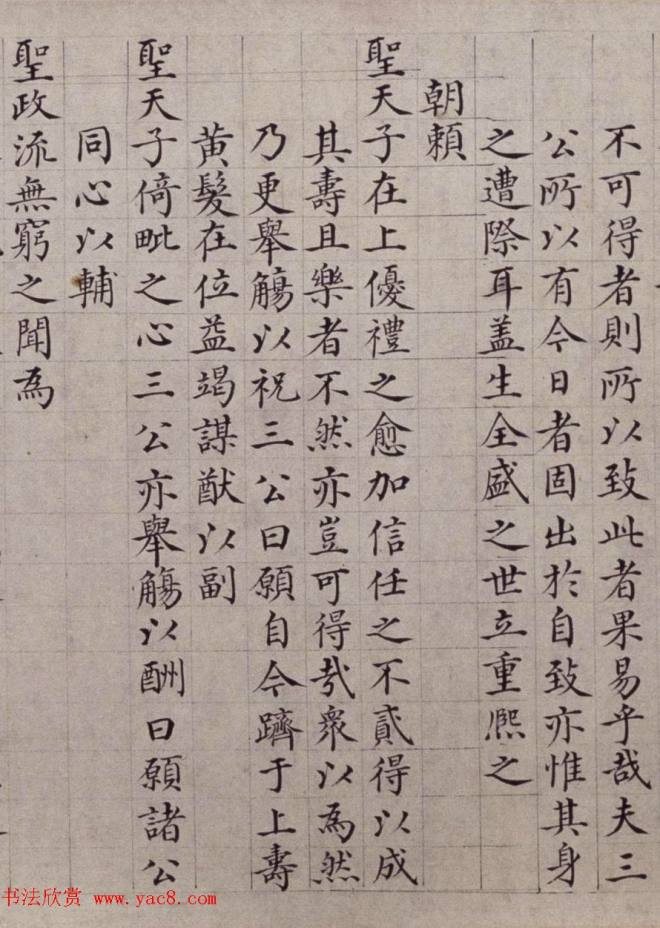 不可得者則所以致此者果易乎哉夫三
公所以有今日者固出於自致亦惟其身
之遭際耳盖生全盛之世立重熙之
朝賴
聖天子在上優禮之愈加信任之不貳得以成
其壽且樂者不然亦豈可得哉衆以為然
乃更舉觴以祝三公曰願自今躋于上壽
黃髮在位益竭謀猷以副
聖天子倚毗之心三公亦舉觴以酬曰願諸公
同心以輔
聖政流無窮之聞為
书法欣赏 www.yac8.com